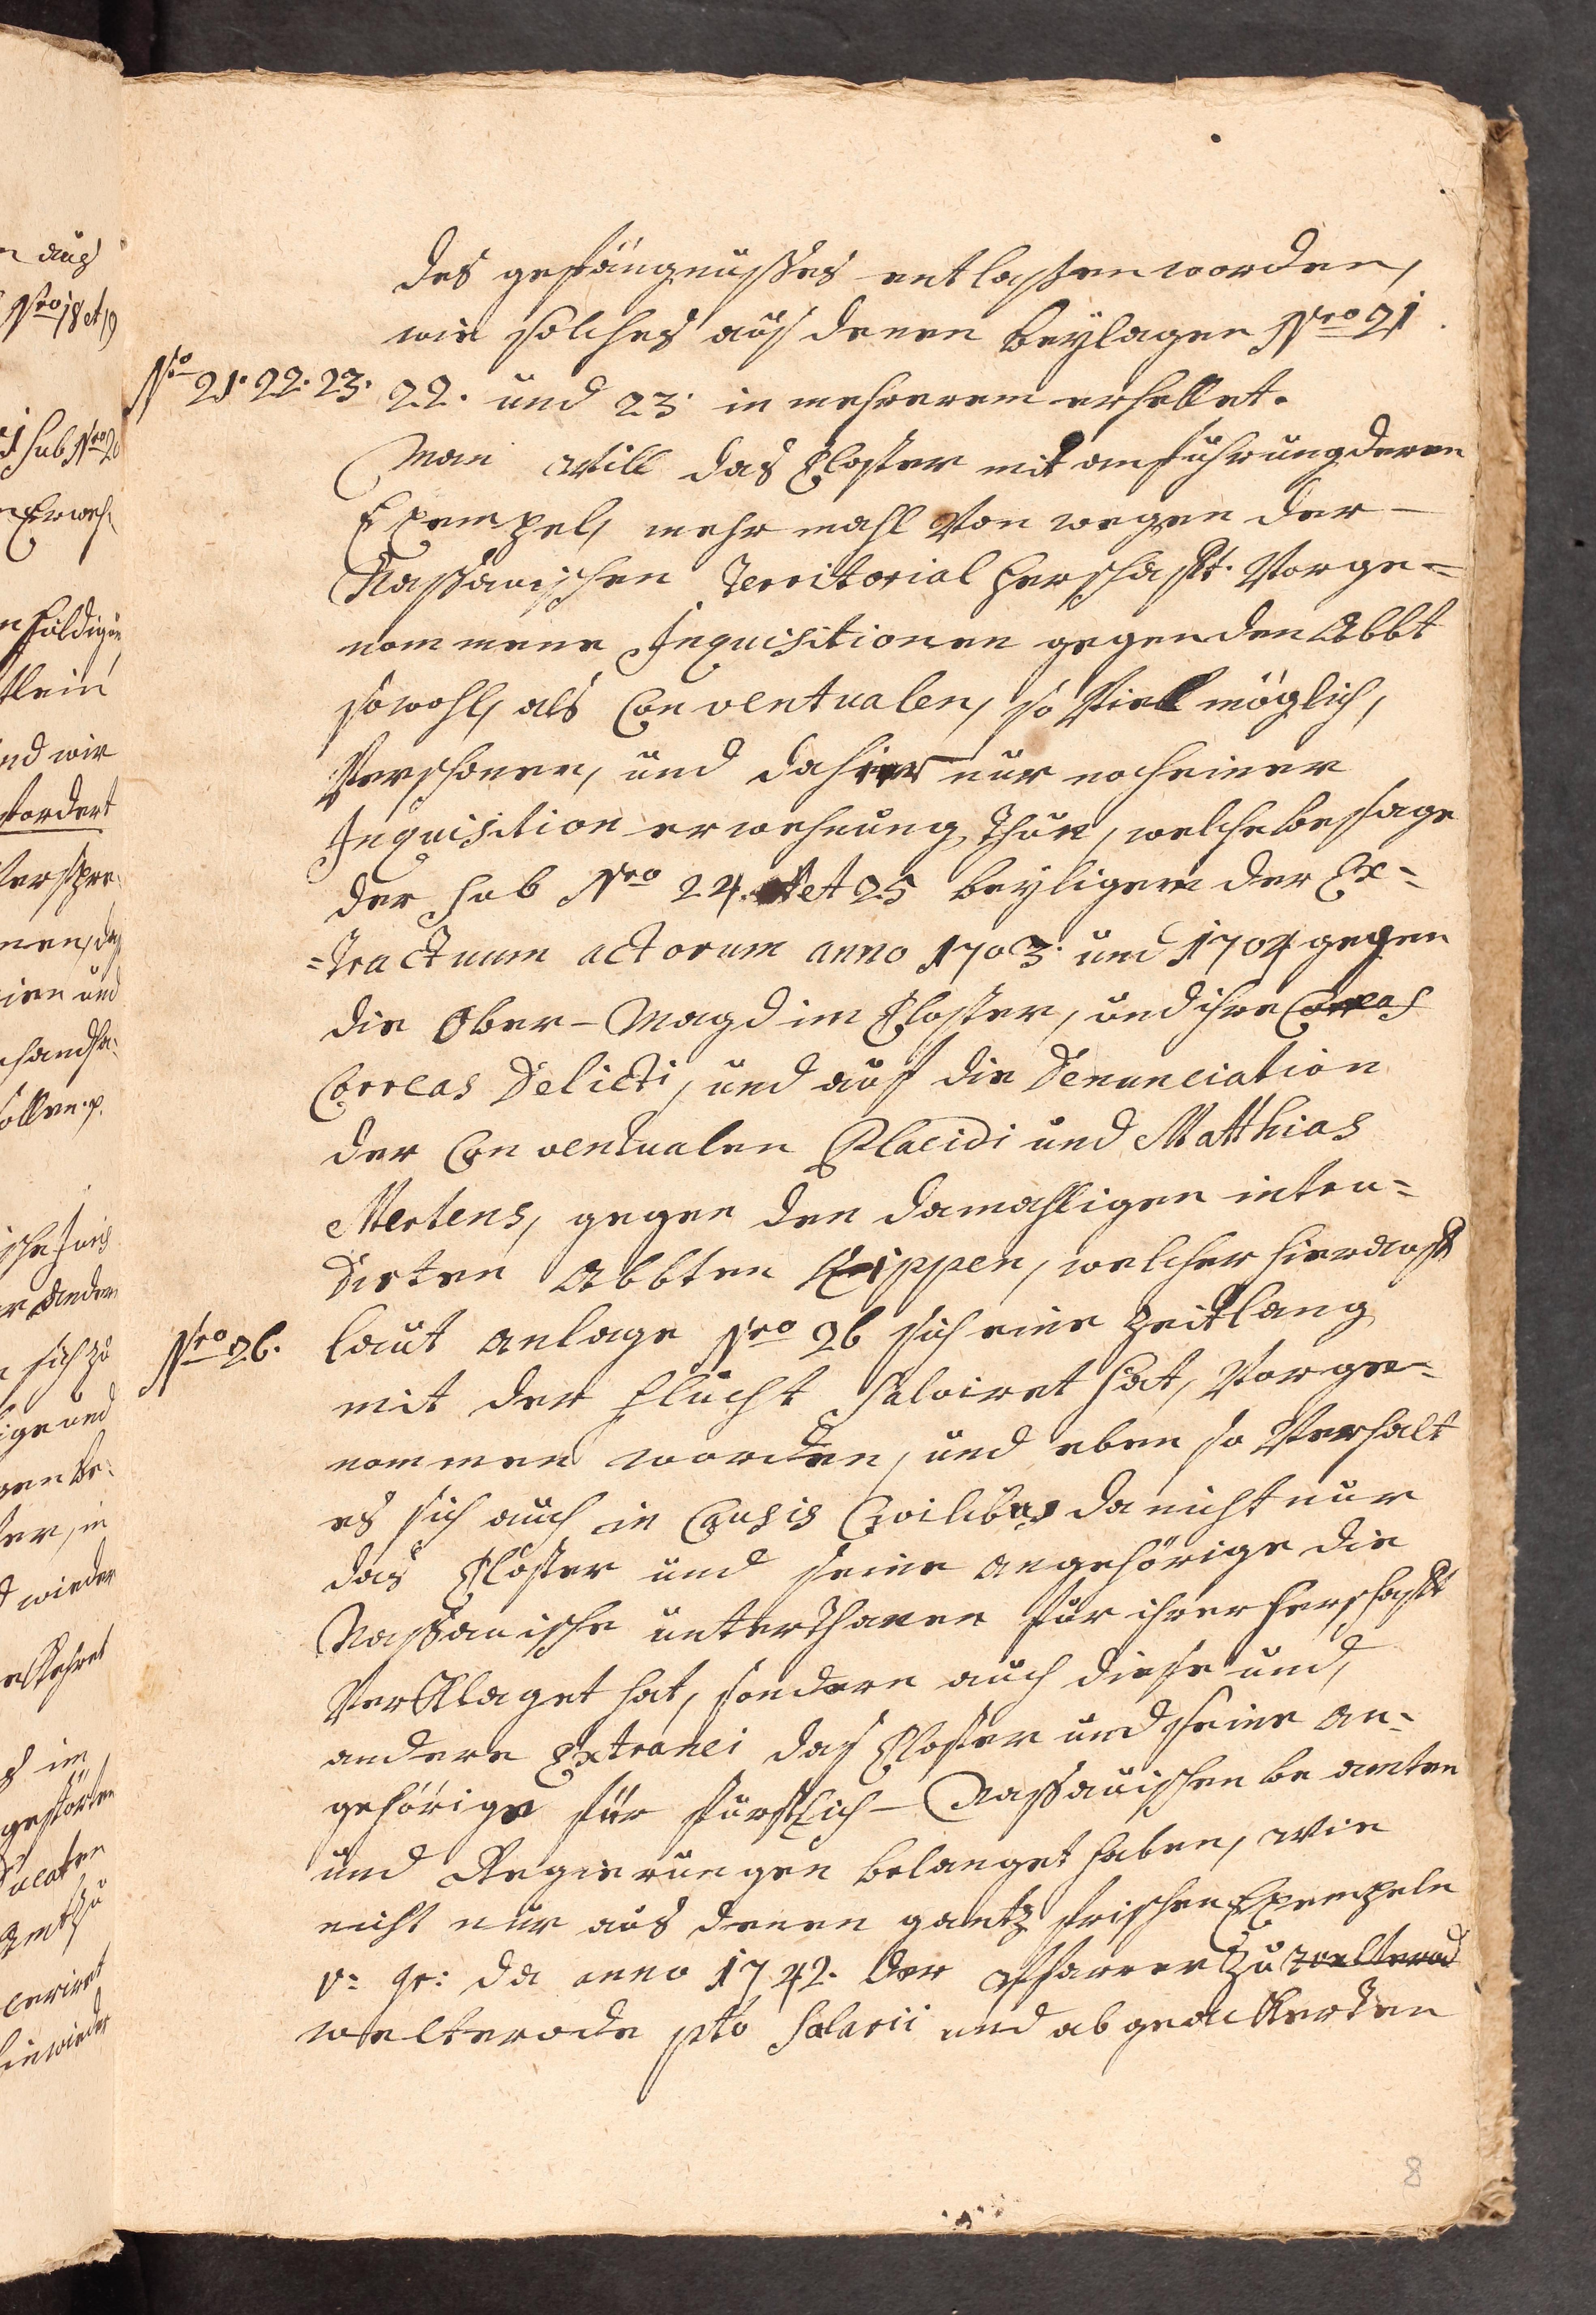 des gefängnußes entlaßen worden,
wie solches auß denen beylagen Nro 21.
No 21. 22. 23. 22. und 23. in mehrerem erhellet.
Man will das Closter mit anführung deren
Exempel, mehrmahl von wegen der –
Naßauischen Territorial herschafft. Vorge=
nommene Inquisitionen gegen den Abbt
sowohl, als Conventualen, so viel möglich,
verschonen, und dahier nur noch einer
Inquisition erwehnung thun, welche besage
der sub Nro 24. et 25 beyligender Ex=
=tractuum actorum anno 1703. und 1704 gegen
die Ober-Magd im Closter, und ihre Correas
Correas Delicti, und auf die Denunciation
der Conventualen Placidi und Matthias
Mertens, gegen den damahligen intru=
dirten Abbten Eippen, welcher hierauf
Nro 26. laut anlage Nro 26 sich eine zeitlang
mit der flucht salviret hat, vorge=
nommen worden, und eben so verhalt
es sich auch in Causis Civilibus da nicht nur
das Closter und seine angehörige die
Naßauische unterthanen für ihrer herschafft
verklaget hat, sondern auch diese und
andere Extranei das Closter und seine an=
gehörige für fürstlich – Naßauischen beamten
und Regierungen belanget haben, wie
nicht nur aus denen gantz frischen Exempeln
v: gr: da anno 1742. der Pfarrer zu welterod
welterode pto Salarii und abgeackerten
8